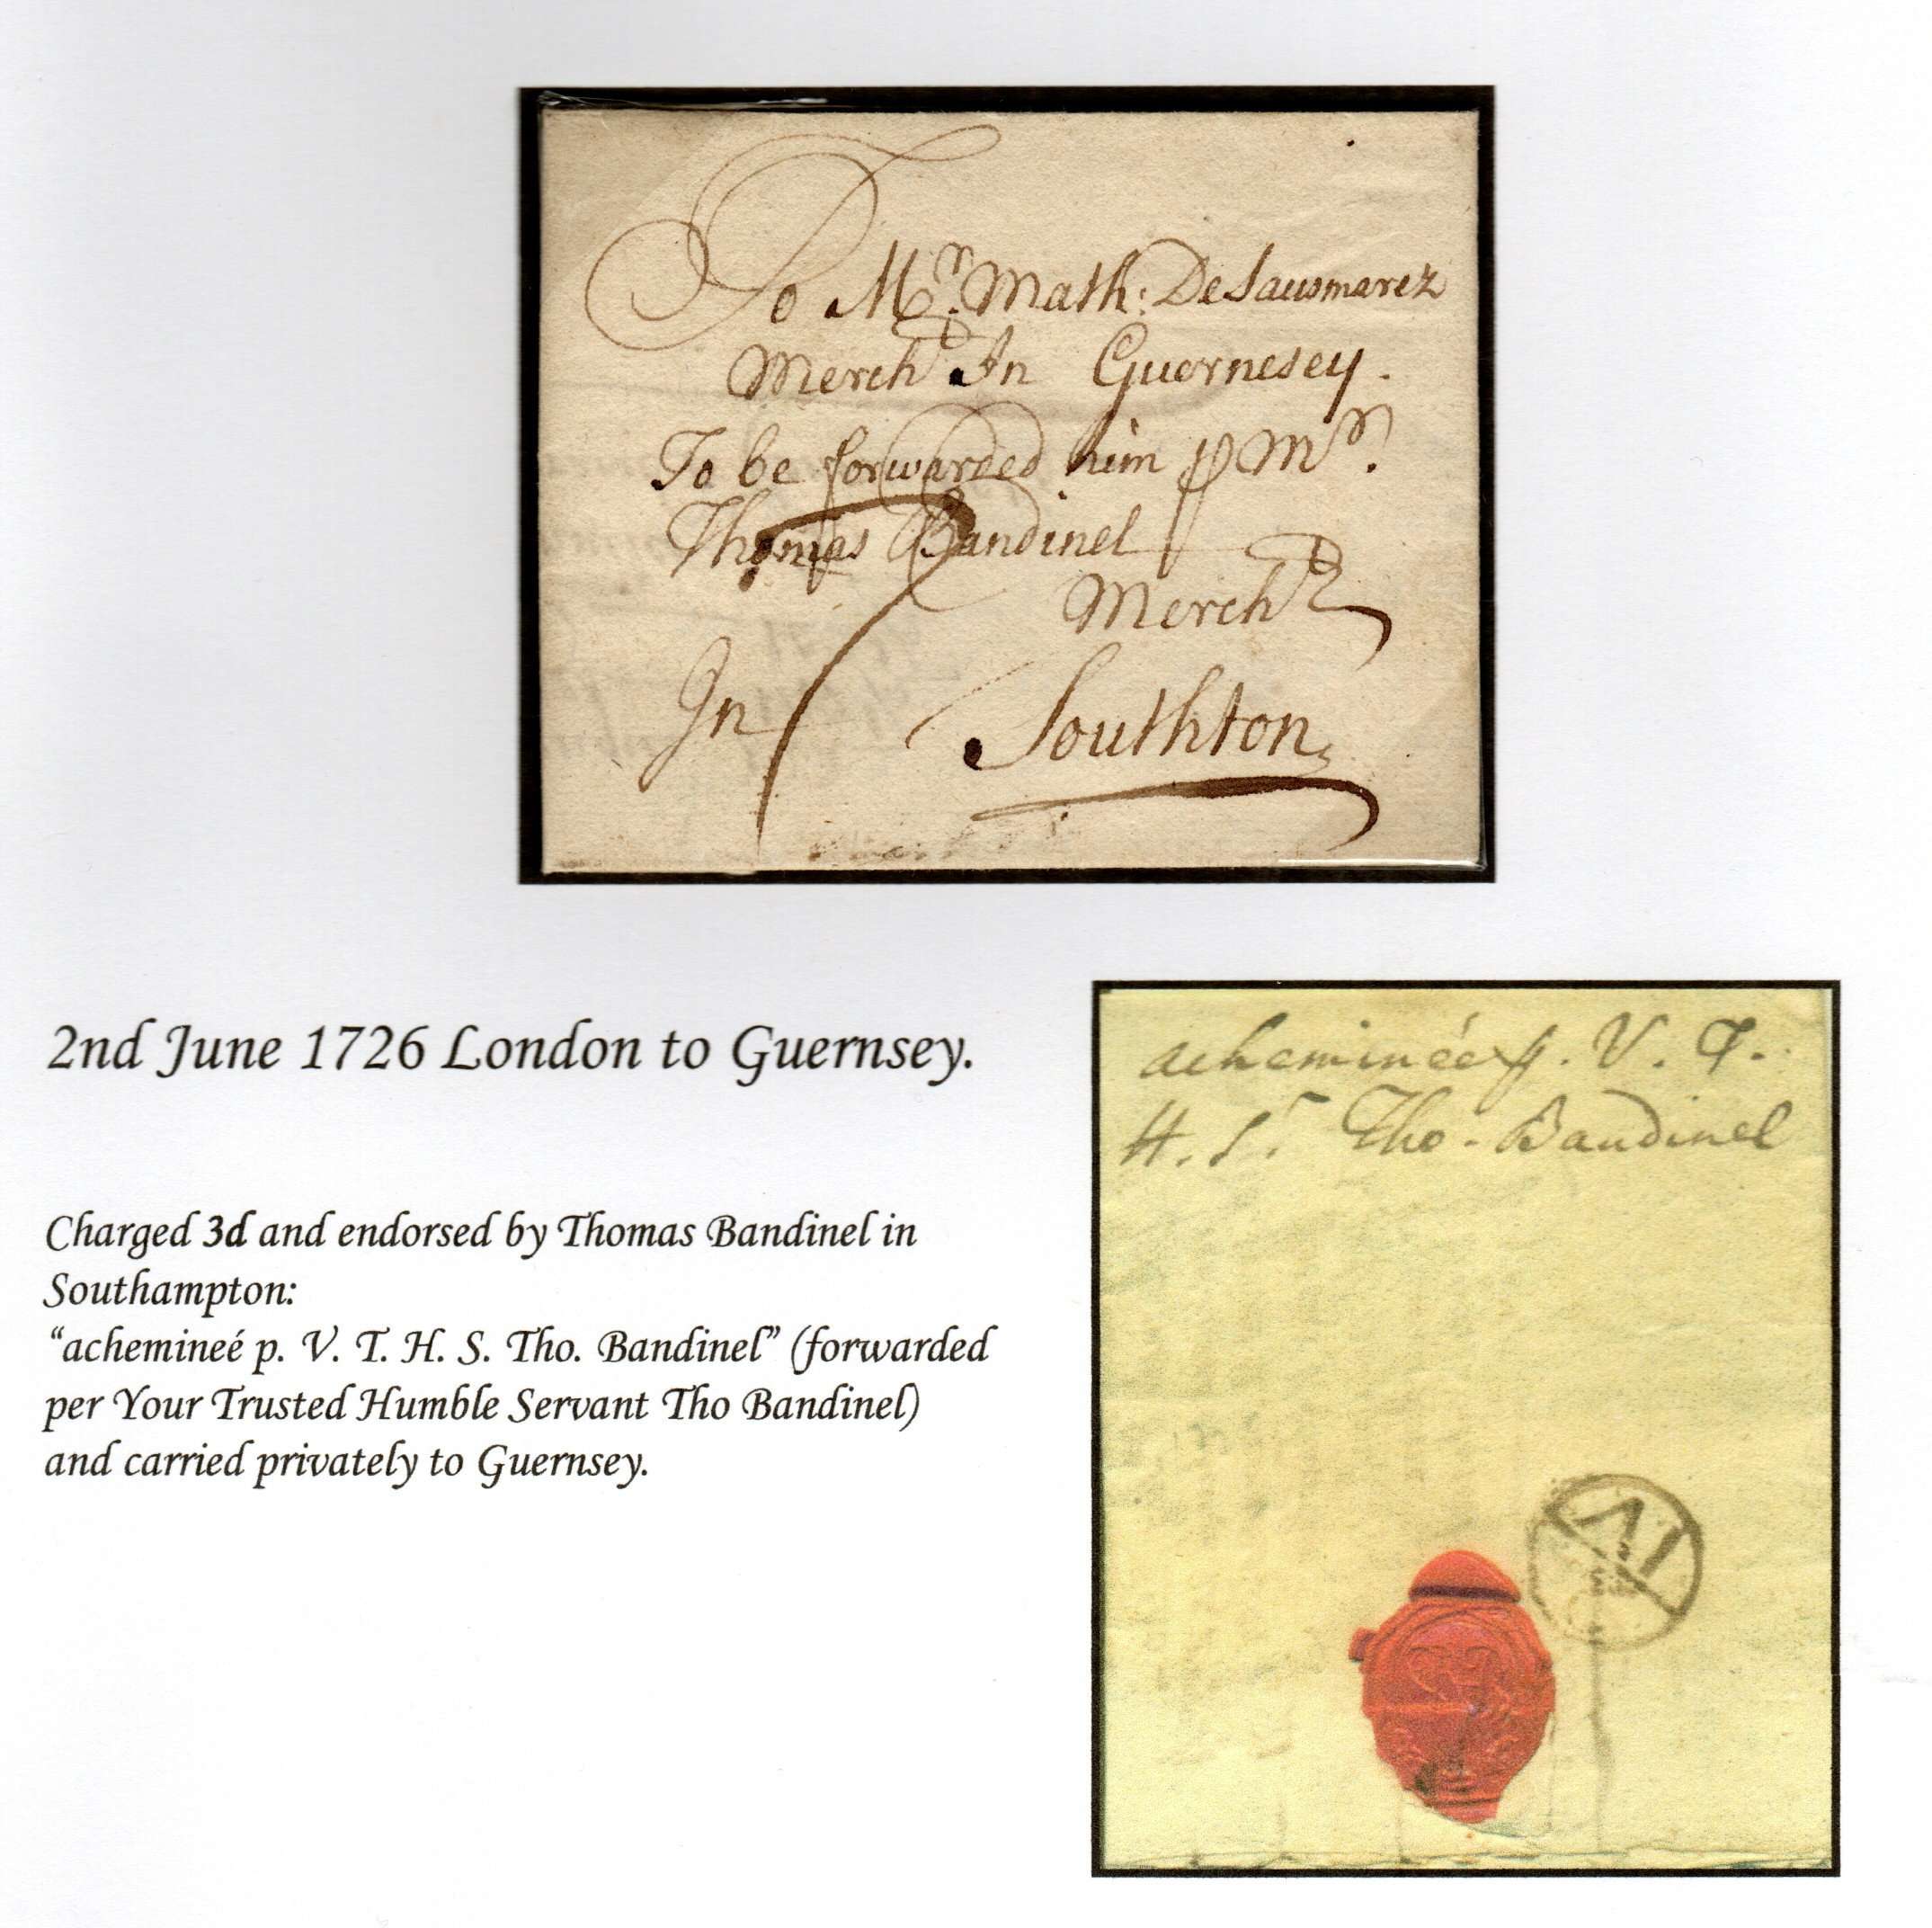 To Mr. Math: DeSausmarez
Mercht In Guernesey.
To be forwarded him p Mr.
Thomas Bandinel
Mercht
In Southton
2nd June 1726 London to Guernsey.
Charged 3d and endorsed by Thomas Bandinel in
Southampton:
“achemineé p. V. T. H. S. Tho. Bandinel” (forwarded
per Your Trusted Humble Servant Tho Bandinel)
and carried privately to Guernsey.
acheminée p. V. T.
H. Sr Tho. Bandinel
IV